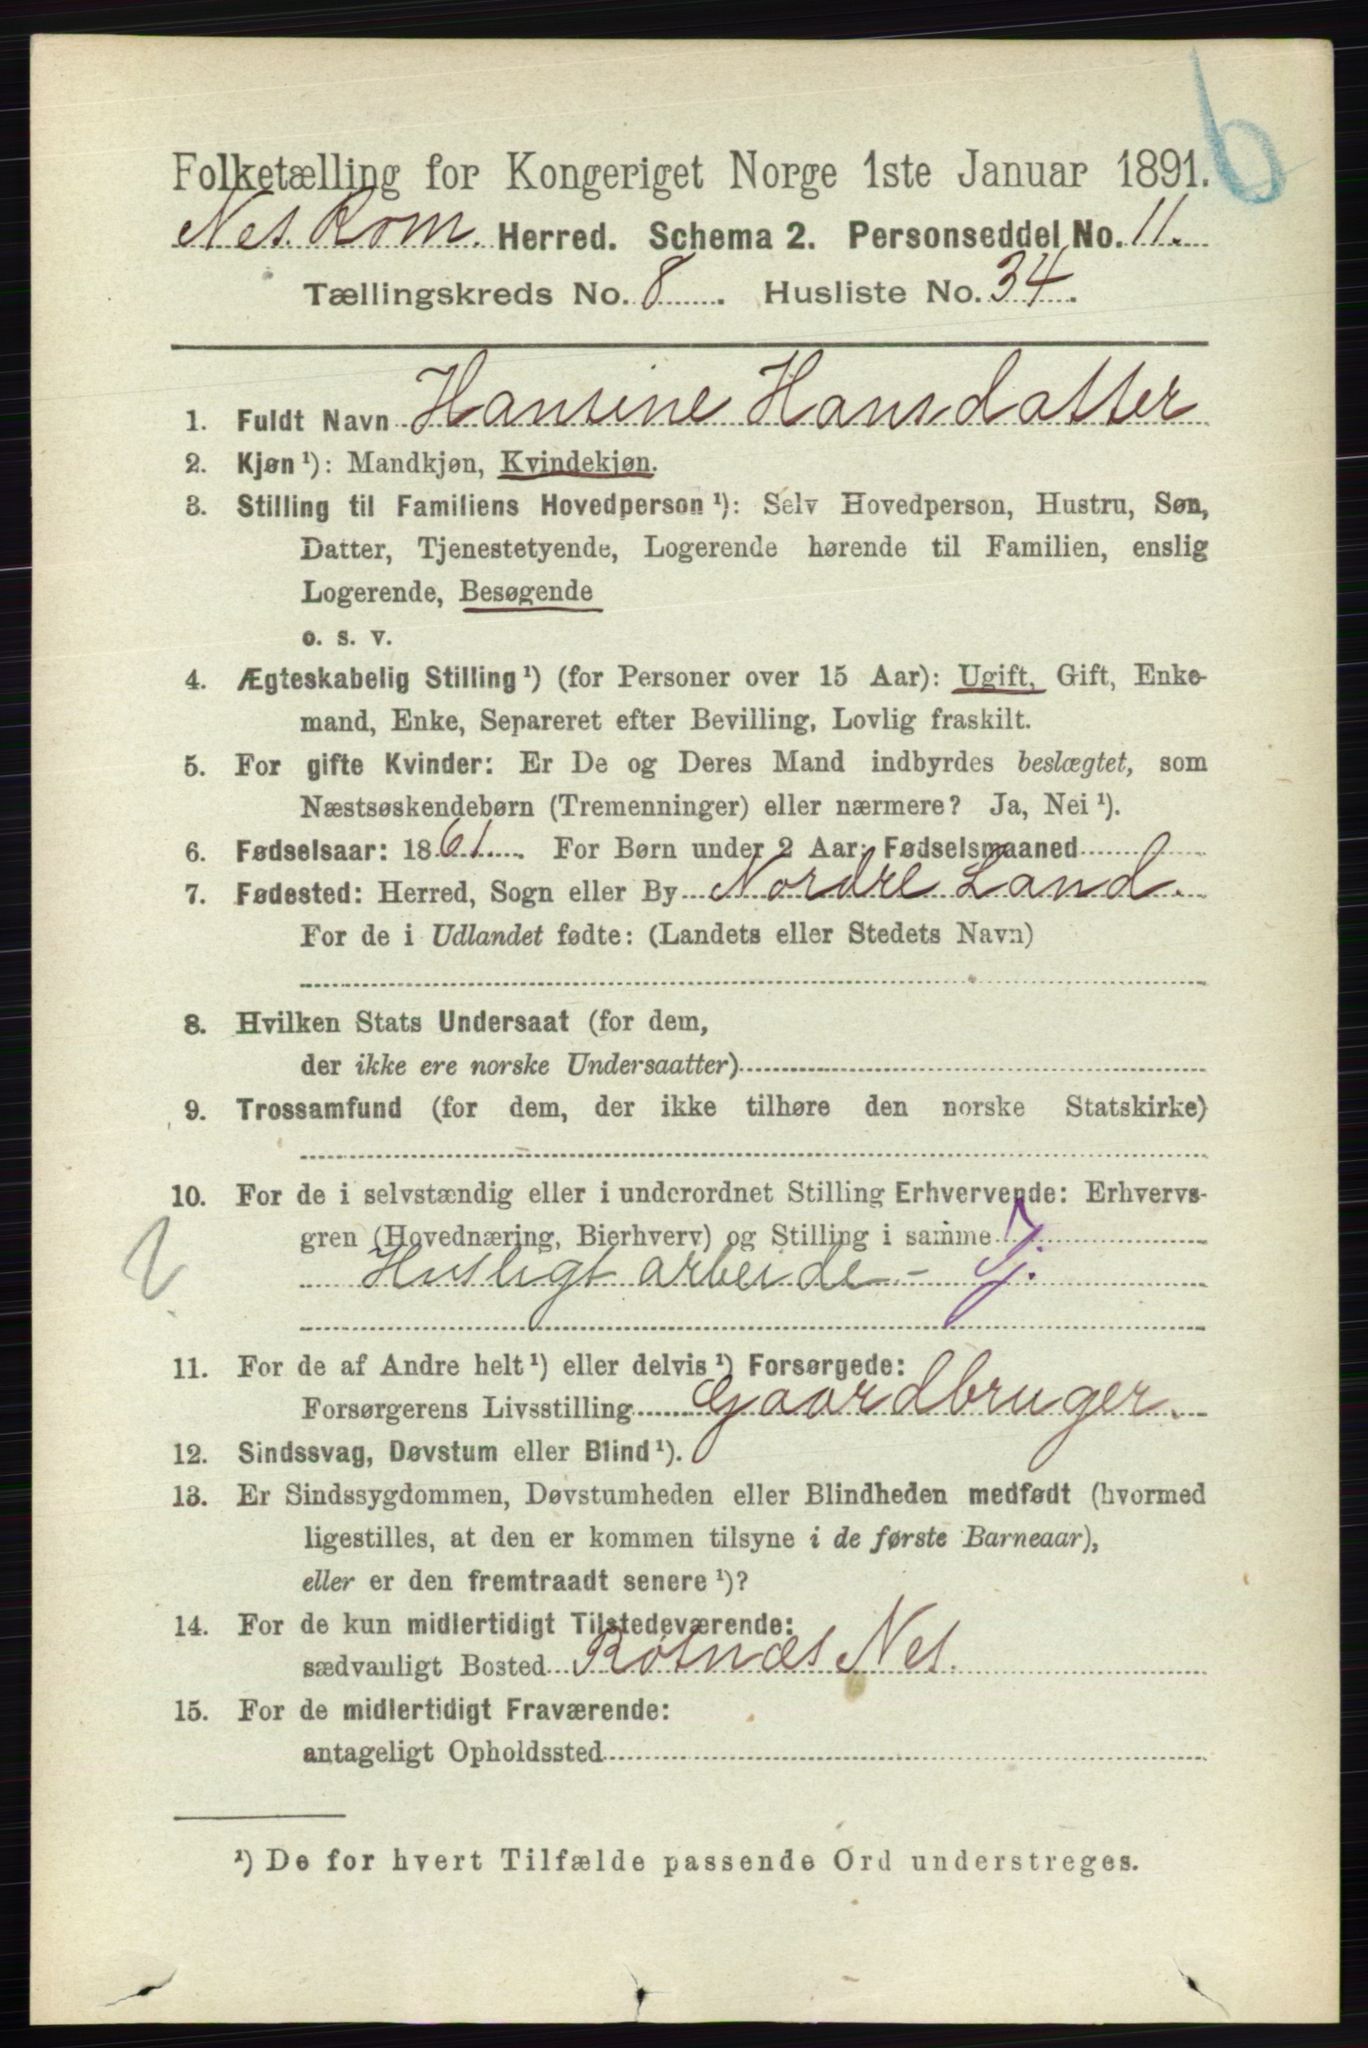 6
Folketælling for Kongeriget Norge 1ste Januar 1891.
Nes. Rom. Herred. Schema 2. Personseddel No. 11.
Tællingskreds No. 8. Husliste No. 34.
1. Fuldt Navn Hansine Hansdatter
2. Kjøn ¹): Mandkjøn, Kvindekjøn.
3. Stilling til Familiens Hovedperson ¹): Selv Hovedperson, Hustru, Søn,
Datter, Tjenestetyende, Logerende hørende til Familien, enslig
Logerende, Besøgende
o. s. v.
4. Ægteskabelig Stilling ¹) (for Personer over 15 Aar): Ugift, Gift, Enke-
mand, Enke, Separeret efter Bevilling, Lovlig fraskilt.
5. For gifte Kvinder: Er De og Deres Mand indbyrdes beslægtet, som
Næstsøskendebørn (Tremenninger) eller nærmere? Ja, Nei ¹).
6. Fødselsaar: 1861. For Børn under 2 Aar: Fødselsmaaned
7. Fødested: Herred, Sogn eller By Nordre Land.
For de i Udlandet fødte: (Landets eller Stedets Navn)
8. Hvilken Stats Undersaat (for dem,
der ikke ere norske Undersaatter)
9. Trossamfund (for dem, der ikke tilhøre den norske Statskirke)
10. For de i selvstændig eller i underordnet Stilling Erhvervende: Erhvervs-
gren (Hovednæring, Bierhverv) og Stilling i samme
Husligt arbeide -
11. For de af Andre helt ¹) eller delvis ¹) Forsørgede:
Forsørgerens Livsstilling Gaardbruger.
12. Sindssvag, Døvstum eller Blind ¹).
13. Er Sindssygdommen, Døvstumheden eller Blindheden medfødt (hvormed
ligestilles, at den er kommen tilsyne i de første Barneaar),
eller er den fremtraadt senere ¹)?
14. For de kun midlertidigt Tilstedeværende:
sædvanligt Bosted Rotnæs Nes.
15. For de midlertidigt Fraværende:
antageligt Opholdssted
¹) De for hvert Tilfælde passende Ord understreges.